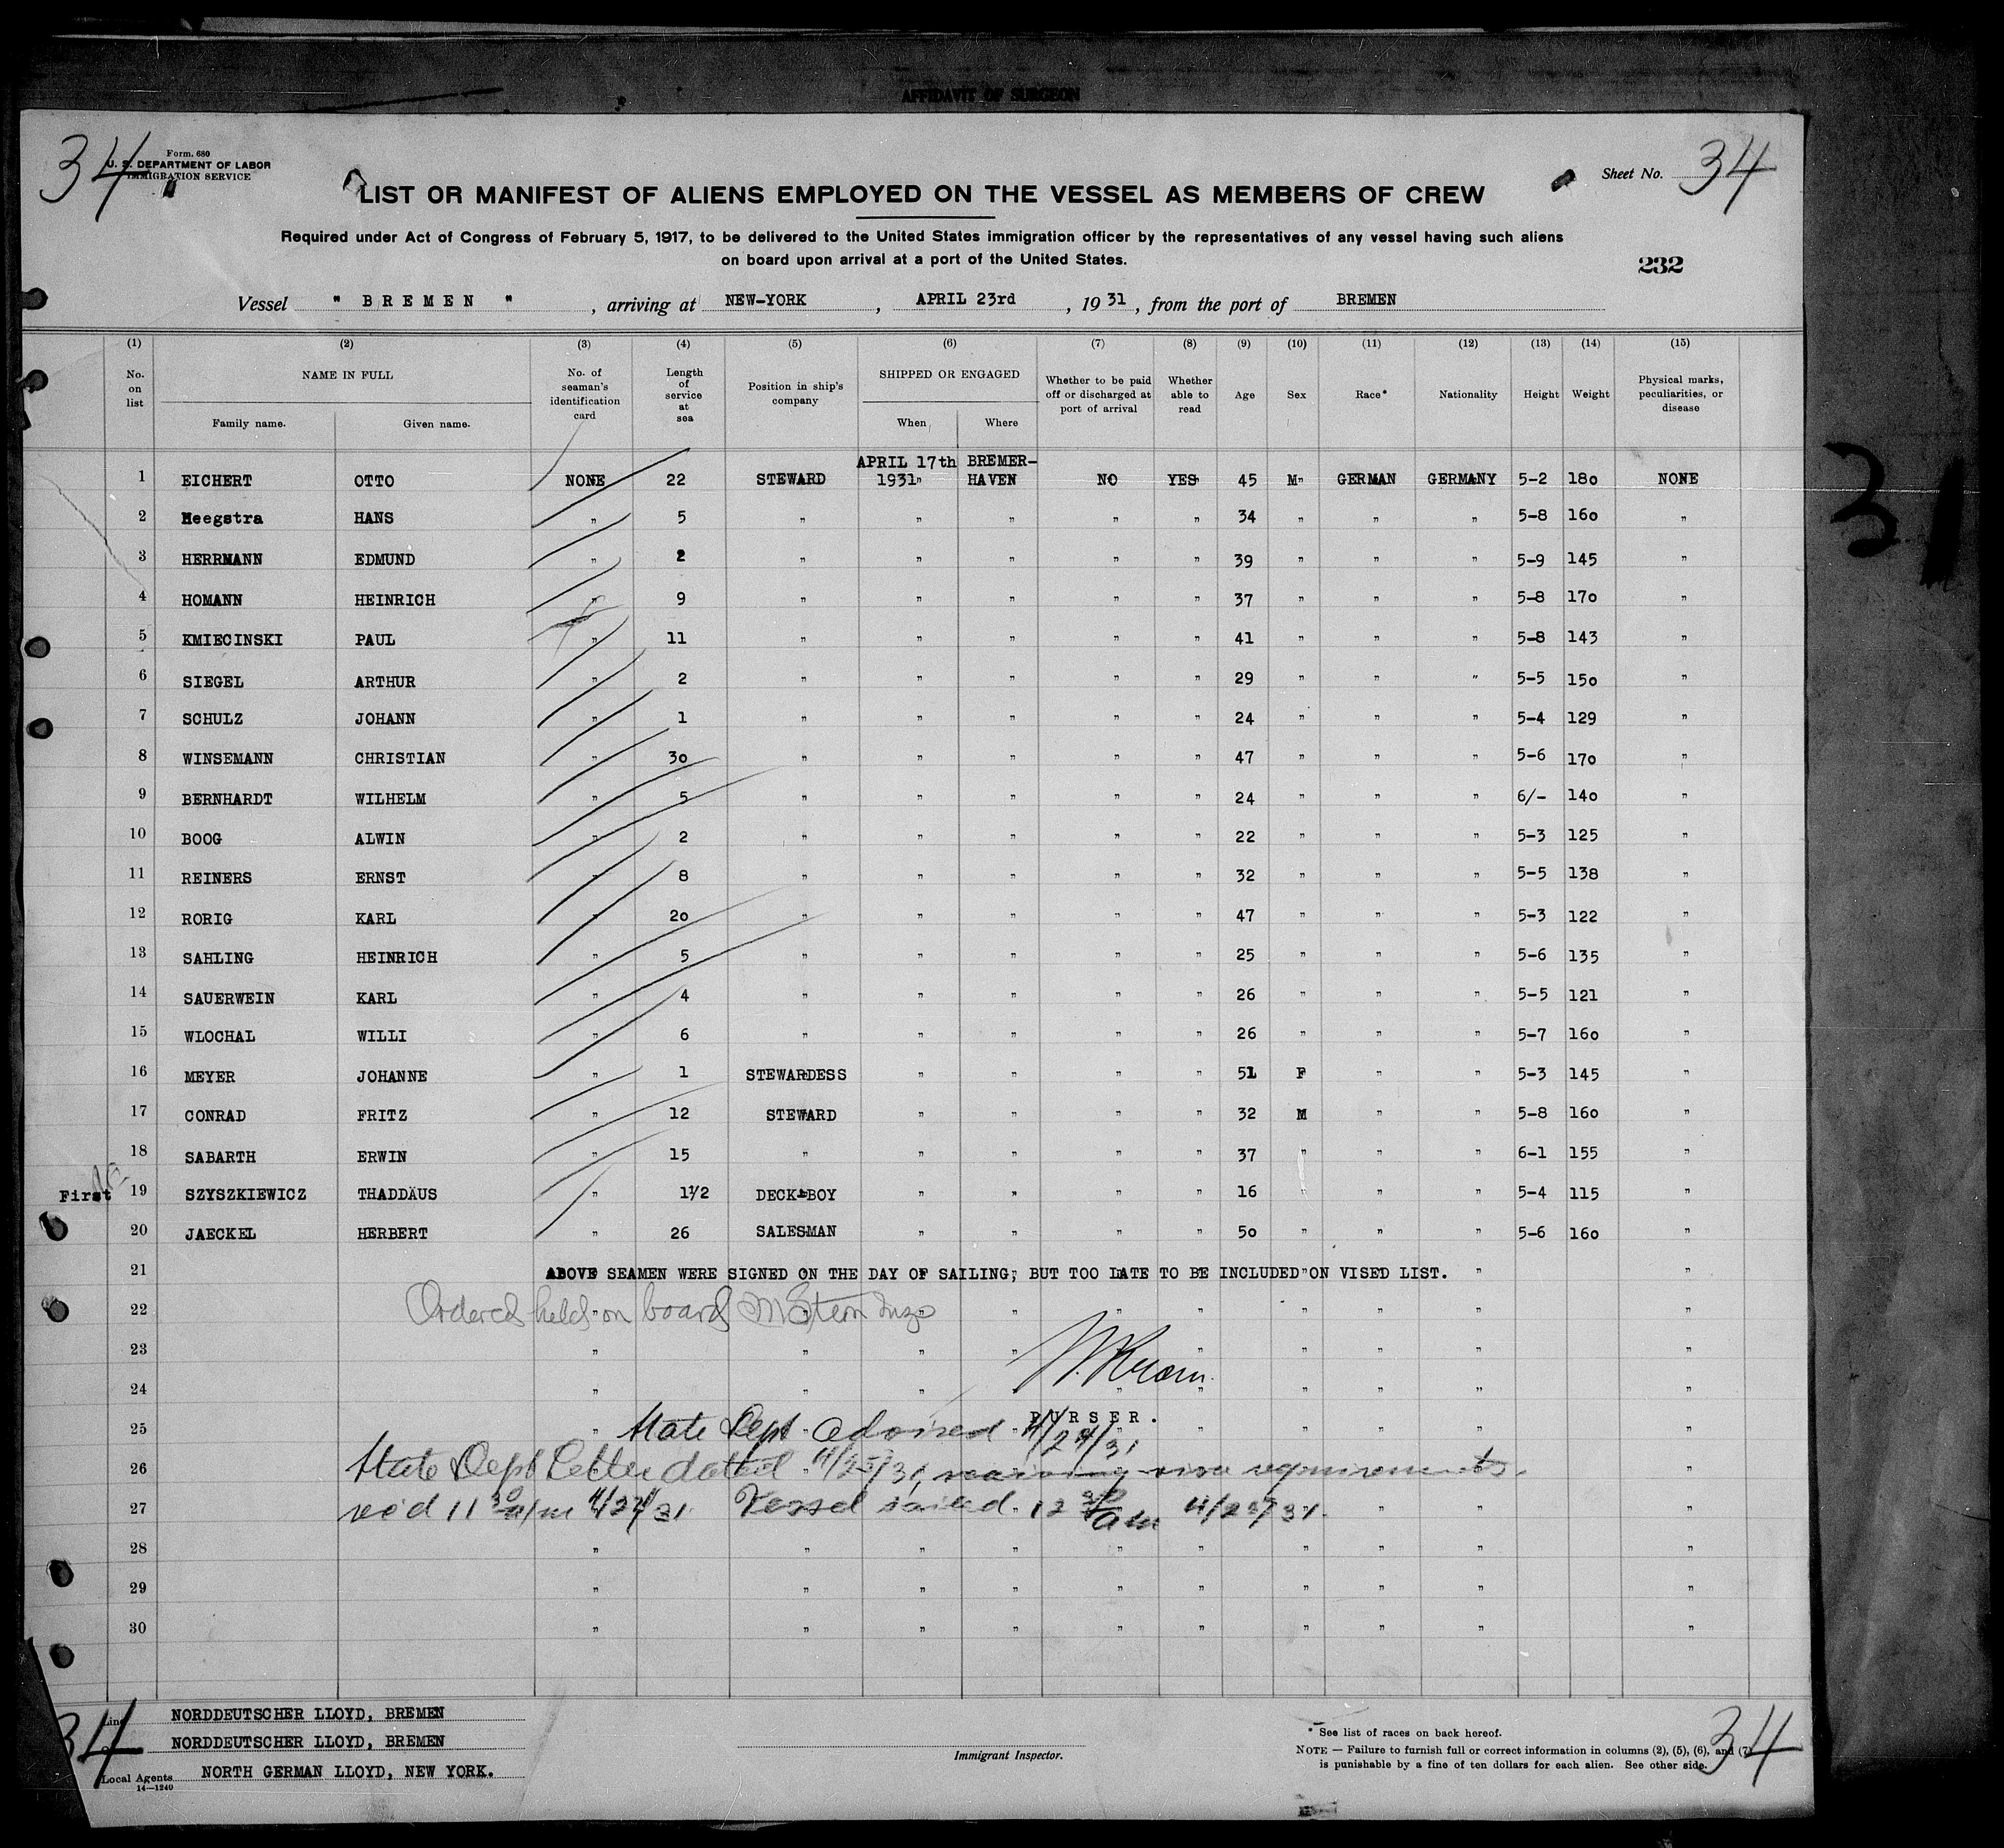 AFFIDAVIT OF SURGEON
34
Form. 680
U. S. DEPARTMENT OF LABOR
IMMIGRATION SERVICE
Sheet No. 34
LIST OR MANIFEST OF ALIENS EMPLOYED ON THE VESSEL AS MEMBERS OF CREW
Required under Act of Congress of February 5, 1917, to be delivered to the United States immigration officer by the representatives of any vessel having such aliens
on board upon arrival at a port of the United States.
232
Vessel " BREMEN " , arriving at NEW-YORK , APRIL 23rd , 19 31 , from the port of BREMEN
(1) (2) (3) (4) (5) (6) (7) (8) (9) (10) (11) (12) (13) (14) (15)
No. on list NAME IN FULL Family name. Given name. No. of seaman's identification card Length of service at sea Position in ship's company SHIPPED OR ENGAGED When Where Whether to be paid off or discharged at port of arrival Whether able to read Age Sex Race* Nationality Height Weight Physical marks, peculiarities, or disease
1 EICHERT OTTO NONE 22 STEWARD APRIL 17th 1931" BREMER-HAVEN NO YES 45 M" GERMAN GERMANY 5-2 180 NONE
2 Heegstra HANS " 5 " " " " " 34 " " " 5-8 160 "
3 HERRMANN EDMUND " 2 " " " " " 39 " " " 5-9 145 "
4 HOMANN HEINRICH " 9 " " " " " 37 " " " 5-8 170 "
5 KMIECINSKI PAUL " 11 " " " " " 41 " " " 5-8 143 "
6 SIEGEL ARTHUR " 2 " " " " " 29 " " " 5-5 150 "
7 SCHULZ JOHANN " 1 " " " " " 24 " " " 5-4 129 "
8 WINSEMANN CHRISTIAN " 30 " " " " " 47 " " " 5-6 170 "
9 BERNHARDT WILHELM " 5 " " " " " 24 " " " 6/- 140 "
10 BOOG ALWIN " 2 " " " " " 22 " " " 5-3 125 "
11 REINERS ERNST " 8 " " " " " 32 " " " 5-5 138 "
12 RORIG KARL " 20 " " " " " 47 " " " 5-3 122 "
13 SAHLING HEINRICH " 5 " " " " " 25 " " " 5-6 135 "
14 SAUERWEIN KARL " 4 " " " " " 26 " " " 5-5 121 "
15 WLOCHAL WILLI " 6 " " " " " 26 " " " 5-7 160 "
16 MEYER JOHANNE " 1 STEWARDESS " " " " 51 F " " 5-3 145 "
17 CONRAD FRITZ " 12 STEWARD " " " " 32 M " " 5-8 160 "
18 SABARTH ERWIN " 15 " " " " " 37 " " " 6-1 155 "
First 19 SZYSZKIEWICZ THADDÄUS " 1½ DECK-BOY " " " " 16 " " " 5-4 115 "
20 JAECKEL HERBERT " 26 SALESMAN " " " " 50 " " " 5-6 160 "
21 ABOVE SEAMEN WERE SIGNED ON THE DAY OF SAILING, BUT TOO LATE TO BE INCLUDED ON VISED LIST. " "
22 Ordered held on board
23
24
25 State Dept advised 4/24/31 PURSER.
26 State Dept Letter dated 4/25/31 waiving visa requirements.
27 rec'd 11 30 a/m 4/27/31. Vessel sailed 12 30 am 4/25/31.
28 " " " " " " " " " "
29 " " " " " " " " " "
30 " " " " " " " " " "
31
34
Line NORDDEUTSCHER LLOYD, BREMEN
NORDDEUTSCHER LLOYD, BREMEN
Local Agents NORTH GERMAN LLOYD, NEW YORK.
14—1240
Immigrant Inspector.
* See list of races on back hereof.
NOTE — Failure to furnish full or correct information in columns (2), (5), (6), and (7)
is punishable by a fine of ten dollars for each alien. See other side.
34